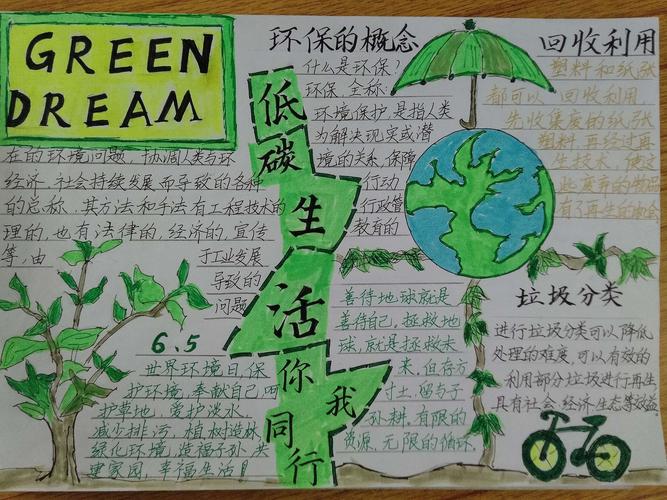 GREEN
DREAM
环保的概念
什么是环保?
环保 全称:
环境保护,是指人类
为解决现实或潜
在的环境问题,协调人类与环
境的关系,保障
经济.社会持续发展而导致的各种
行动
的总称.其方法和手法有工程技术的
行政管
理的,也有法律的,经济的,宣传
教育的
等,由
于工业发展
导致的
问题
低
碳
生
活
你
我
同
行
回收利用
塑料和纸张
都可以 回收利用,
先收集废的纸张
塑料 再经过再
6.5
世界环境日,保
护环境,奉献自己,呵
护草地,爱护淡水,
减少排污,植树造林,
绿化环境,造福子孙,共
建家园,幸福生活!
善待地球就是
善待自己,拯救地
球,就是拯救未
来,但存方
寸土,留与子
孙耕.有限的
资源,无限的循环.
垃圾分类
进行垃圾分类可以降低
处理的难度,可以有效的
利用部分垃圾进行再生
具有社会.经济.生态等效益